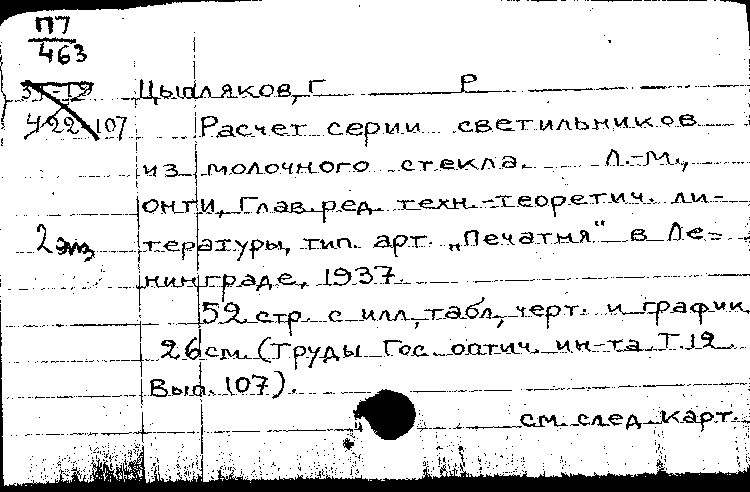 П7
463
Цыпляков, Г Р
422-107
Расчет серии светильников
из молочного стекла. Л.-М.,
ОНТИ, Глав. ред. техн.-теоретич. ли-
2 экз
тературы, тип. арт. „Печатня“ в Ле-
нинграде, 1937.
52 стр. с илл., табл., черт. и график
26 см. (Труды Гос. оптич. ин-та. Т. 12.
Вып. 107).
см. след. карт.